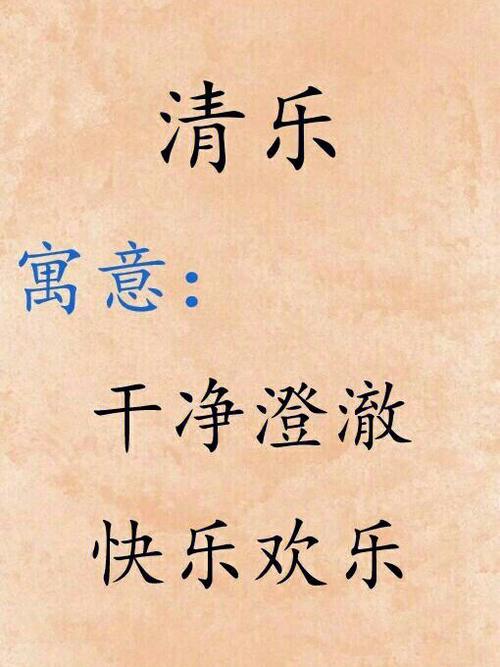 清乐
寓意：
干净澄澈
快乐欢乐